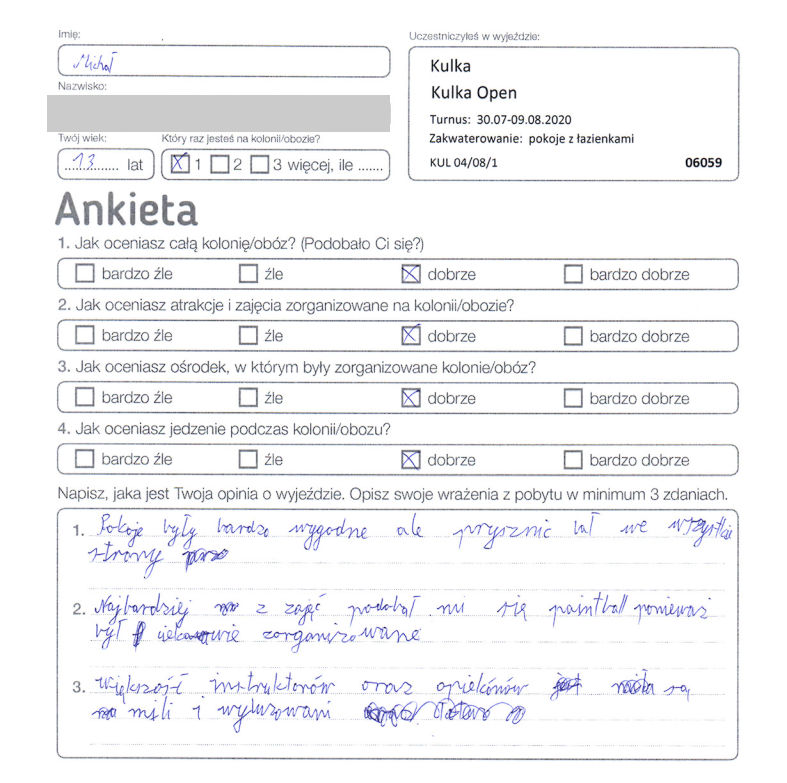 Imię:
Michał
Uczestniczyłeś w wyjeździe:
Kulka
Kulka Open
Turnus: 30.07-09.08.2020
Zakwaterowanie: pokoje z łazienkami
KUL 04/08/1 06059
Nazwisko:
Twój wiek: Który raz jesteś na kolonii/obozie?
13 lat 1 2 3 więcej, ile .......
Ankieta
1. Jak oceniasz całą kolonię/obóz? (Podobało Ci się?)
bardzo źle źle dobrze bardzo dobrze
2. Jak oceniasz atrakcje i zajęcia zorganizowane na kolonii/obozie?
bardzo źle źle dobrze bardzo dobrze
3. Jak oceniasz ośrodek, w którym były zorganizowane kolonie/obóz?
bardzo źle źle dobrze bardzo dobrze
4. Jak oceniasz jedzenie podczas kolonii/obozu?
bardzo źle źle dobrze bardzo dobrze
Napisz, jaka jest Twoja opinia o wyjeździe. Opisz swoje wrażenia z pobytu w minimum 3 zdaniach.
1. Pokoje były bardzo wygodne ale prysznic lał we wszystkie
strony
2. Najbardziej z zajęć podobał mi się paintball ponieważ
był ciekawie zorganizowane
3. Większość instruktorów oraz opiekónów są
mili i wyluzowani